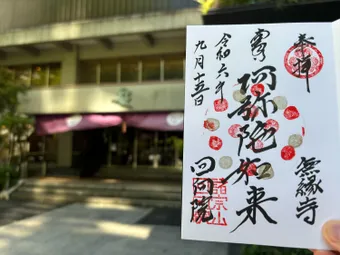 奉拝
無縁寺
阿弥陀如来
回向院
令和六年
九月十五日